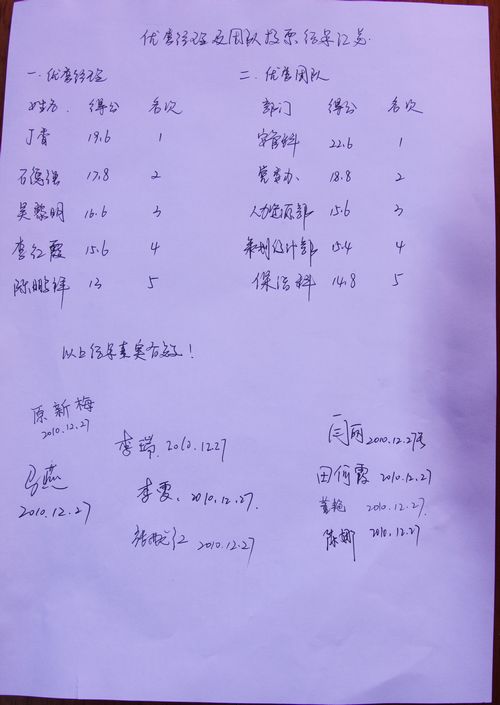 优秀经理及团队投票结果汇总
一.优秀经理 二.优秀团队
姓名 得分 名次 部门 得分 名次
丁雪 19.6 1 安管科 22.6 1
石德强 17.8 2 党客办 18.8 2
吴黎明 16.6 3 人力资源部 15.6 3
李红霞 15.6 4 策划统计部 15.4 4
陈鹏锋 13 5 保洁科 14.8 5
以上结果真实有效!
原新梅
2010.12.27
李瑞 2010.12.27
闫丽 2010.12.27
马燕
2010.12.27
田何霞 2010.12.27
李雪. 2010.12.27.
董艳 2010.12.27
2010.12.27
陈娜 2010.12.27